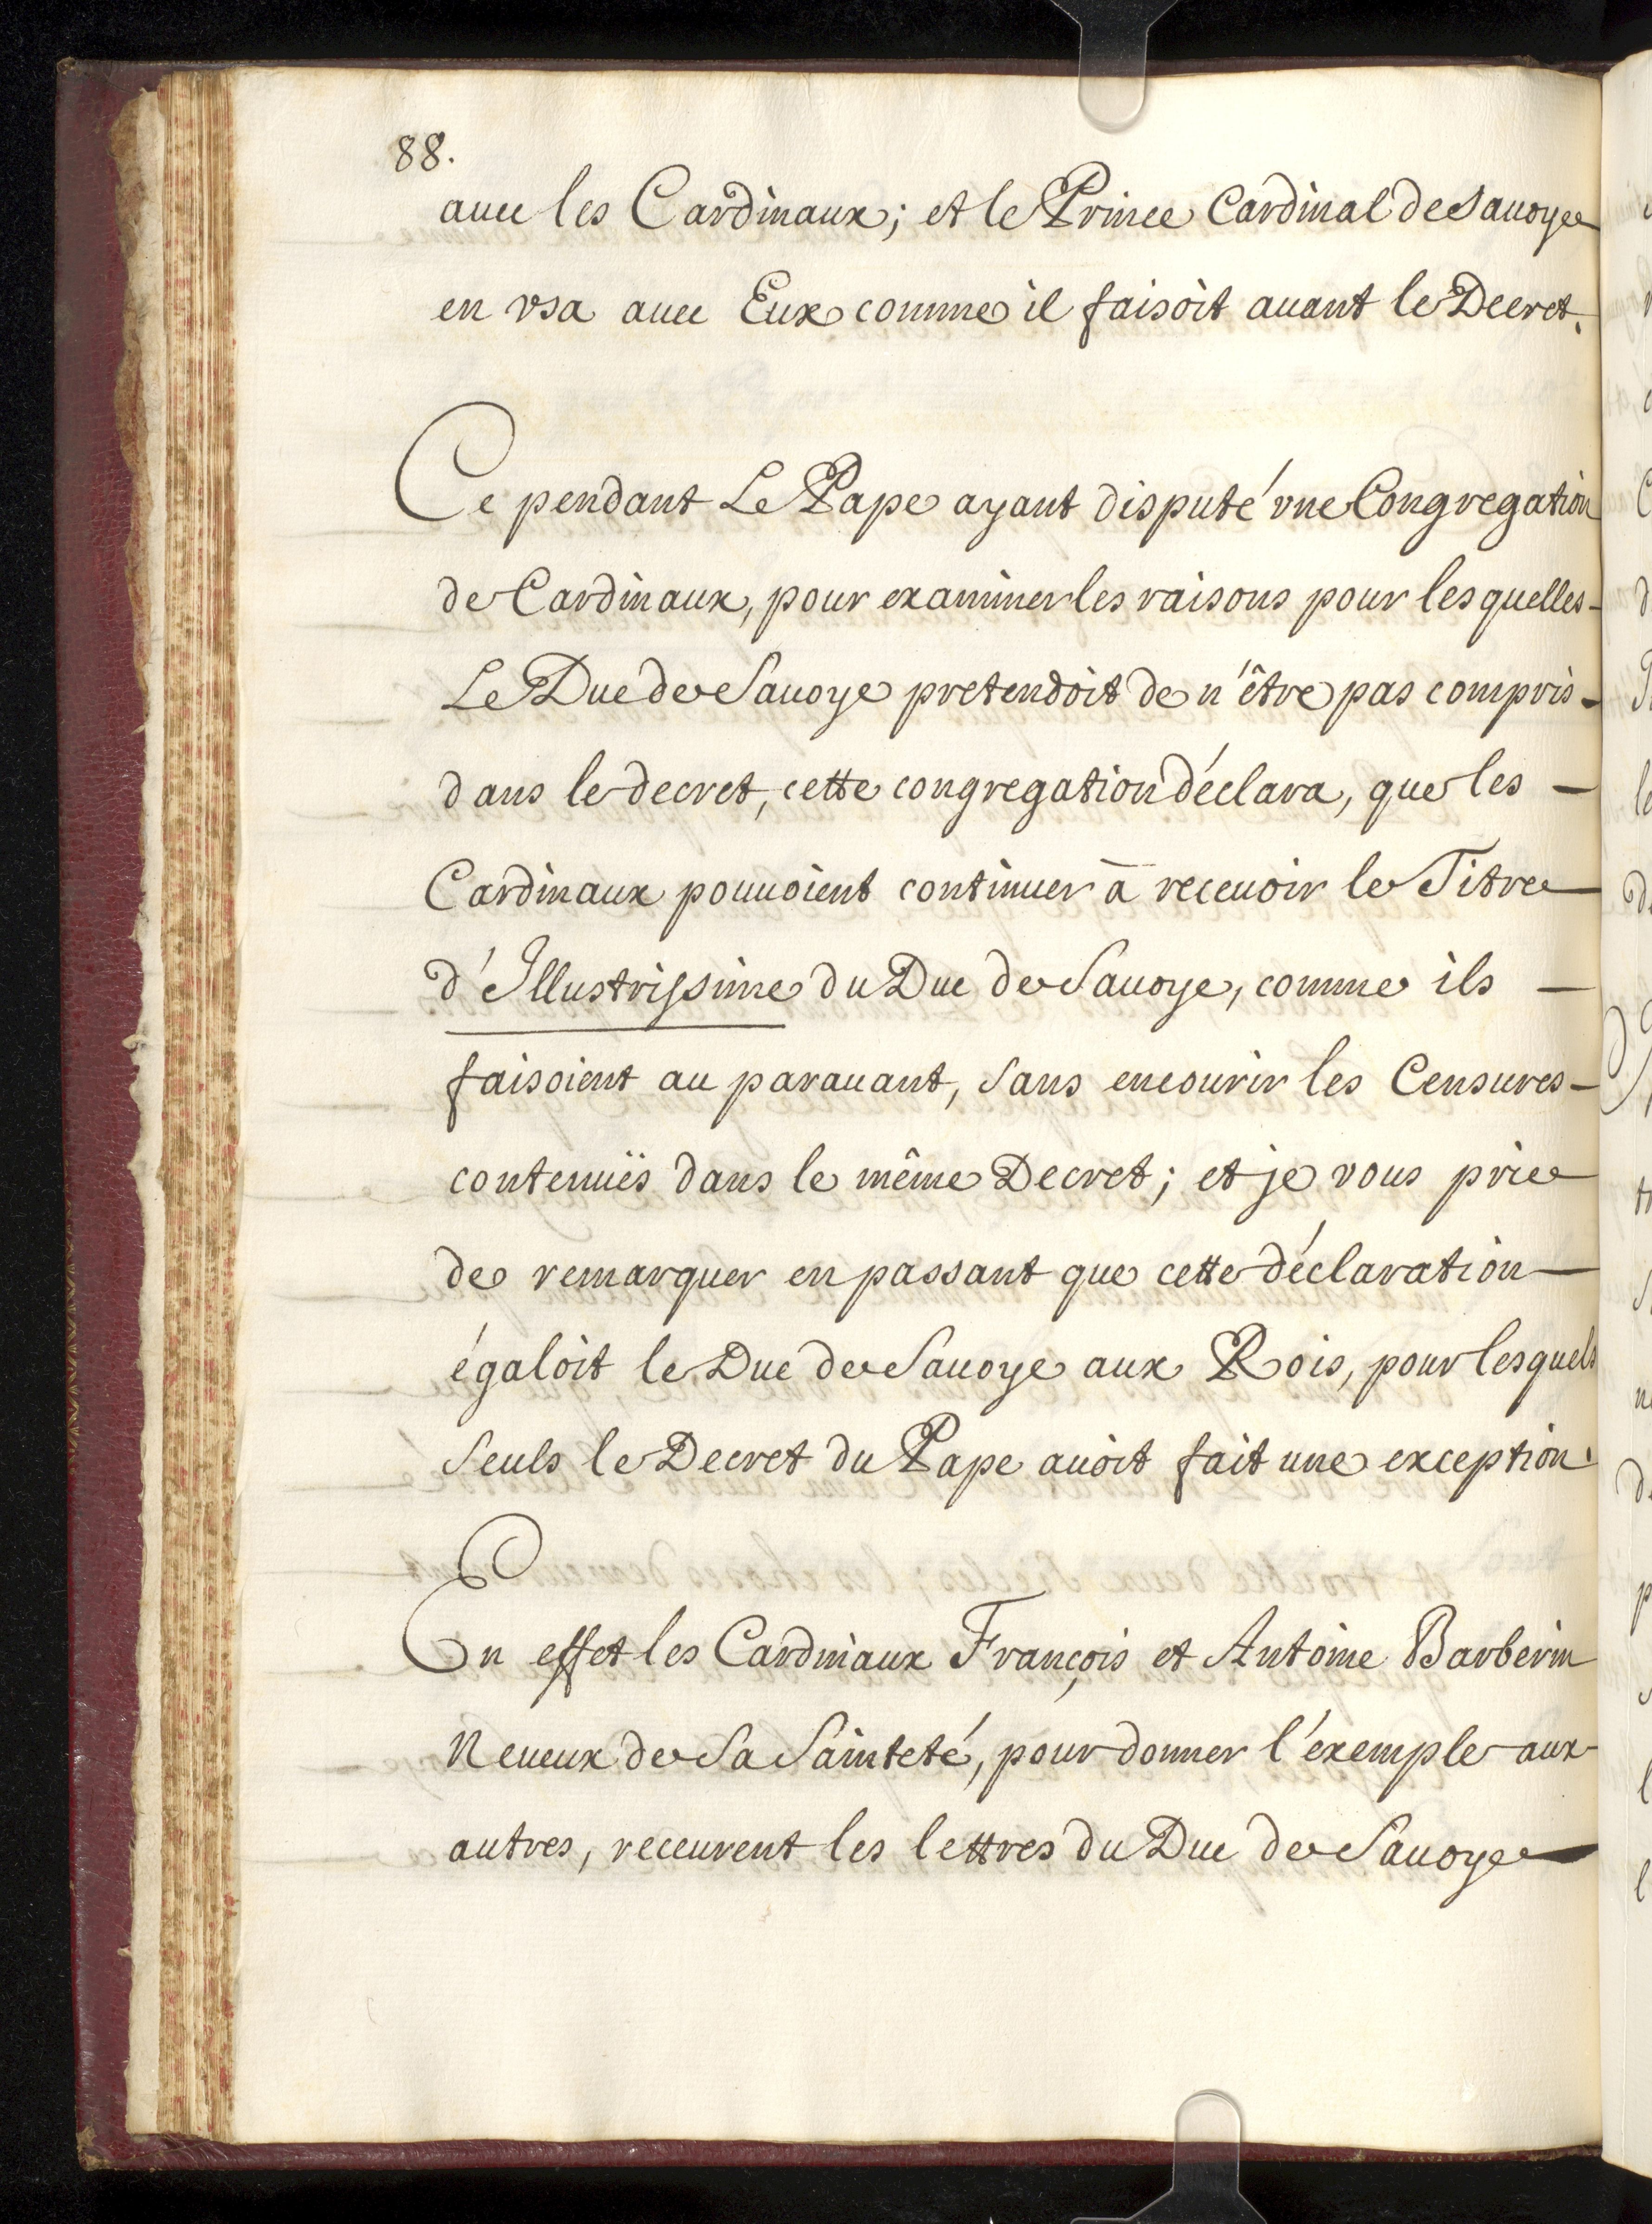 88.
auec les Cardinaux; et le Prince Cardinal de Sauoye
en vsa auec Eux comme il faisoit auant le Decret.
Ce pendant Le Pape ayant disputé vne Congregation
de Cardinaux, pour examiner les raisons pour lesquelles
Le Duc de Sauoye pretendoit de n'être pas compris
dans le decret, cette congregation déclara, que les
Cardinaux pouuoient continuer à receuoir le Titre
d'Illustrissime du Duc de Sauoye, comme ils
faisoient au parauant, sans encourir les Censures
contenuës dans le même Decret; et je vous prie
de remarquer en passant que cette déclaration
égaloit le Duc de Sauoye aux Rois, pour lesquels
seuls le Decret du Pape auoit fait une exception.
En effet les Cardinaux François et Antoine Barberin
Neueux de Sa Sainteté, pour donner l'éxemple aux
autres, receurent les lettres du Duc de Sauoye